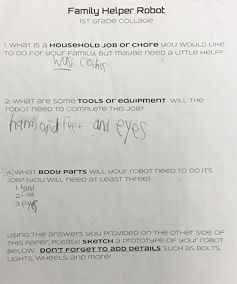 Family Helper Robot
1st Grade Collage
1. What is a household job or chore you would like
to do for your family, but maybe need a little help?
Wash Clothes
2. What are some tools or equipment will the
robot need to complete this job?
hands and feet and eyes
4. What body parts will your robot need to do its
job? (you will need at least three)
1. hand
2.
3. eyes
Using the answers you provided on the other side of
this paper, please sketch a prototype of your robot
below. Don't forget to add details such as bolts,
lights, wheels, and more!